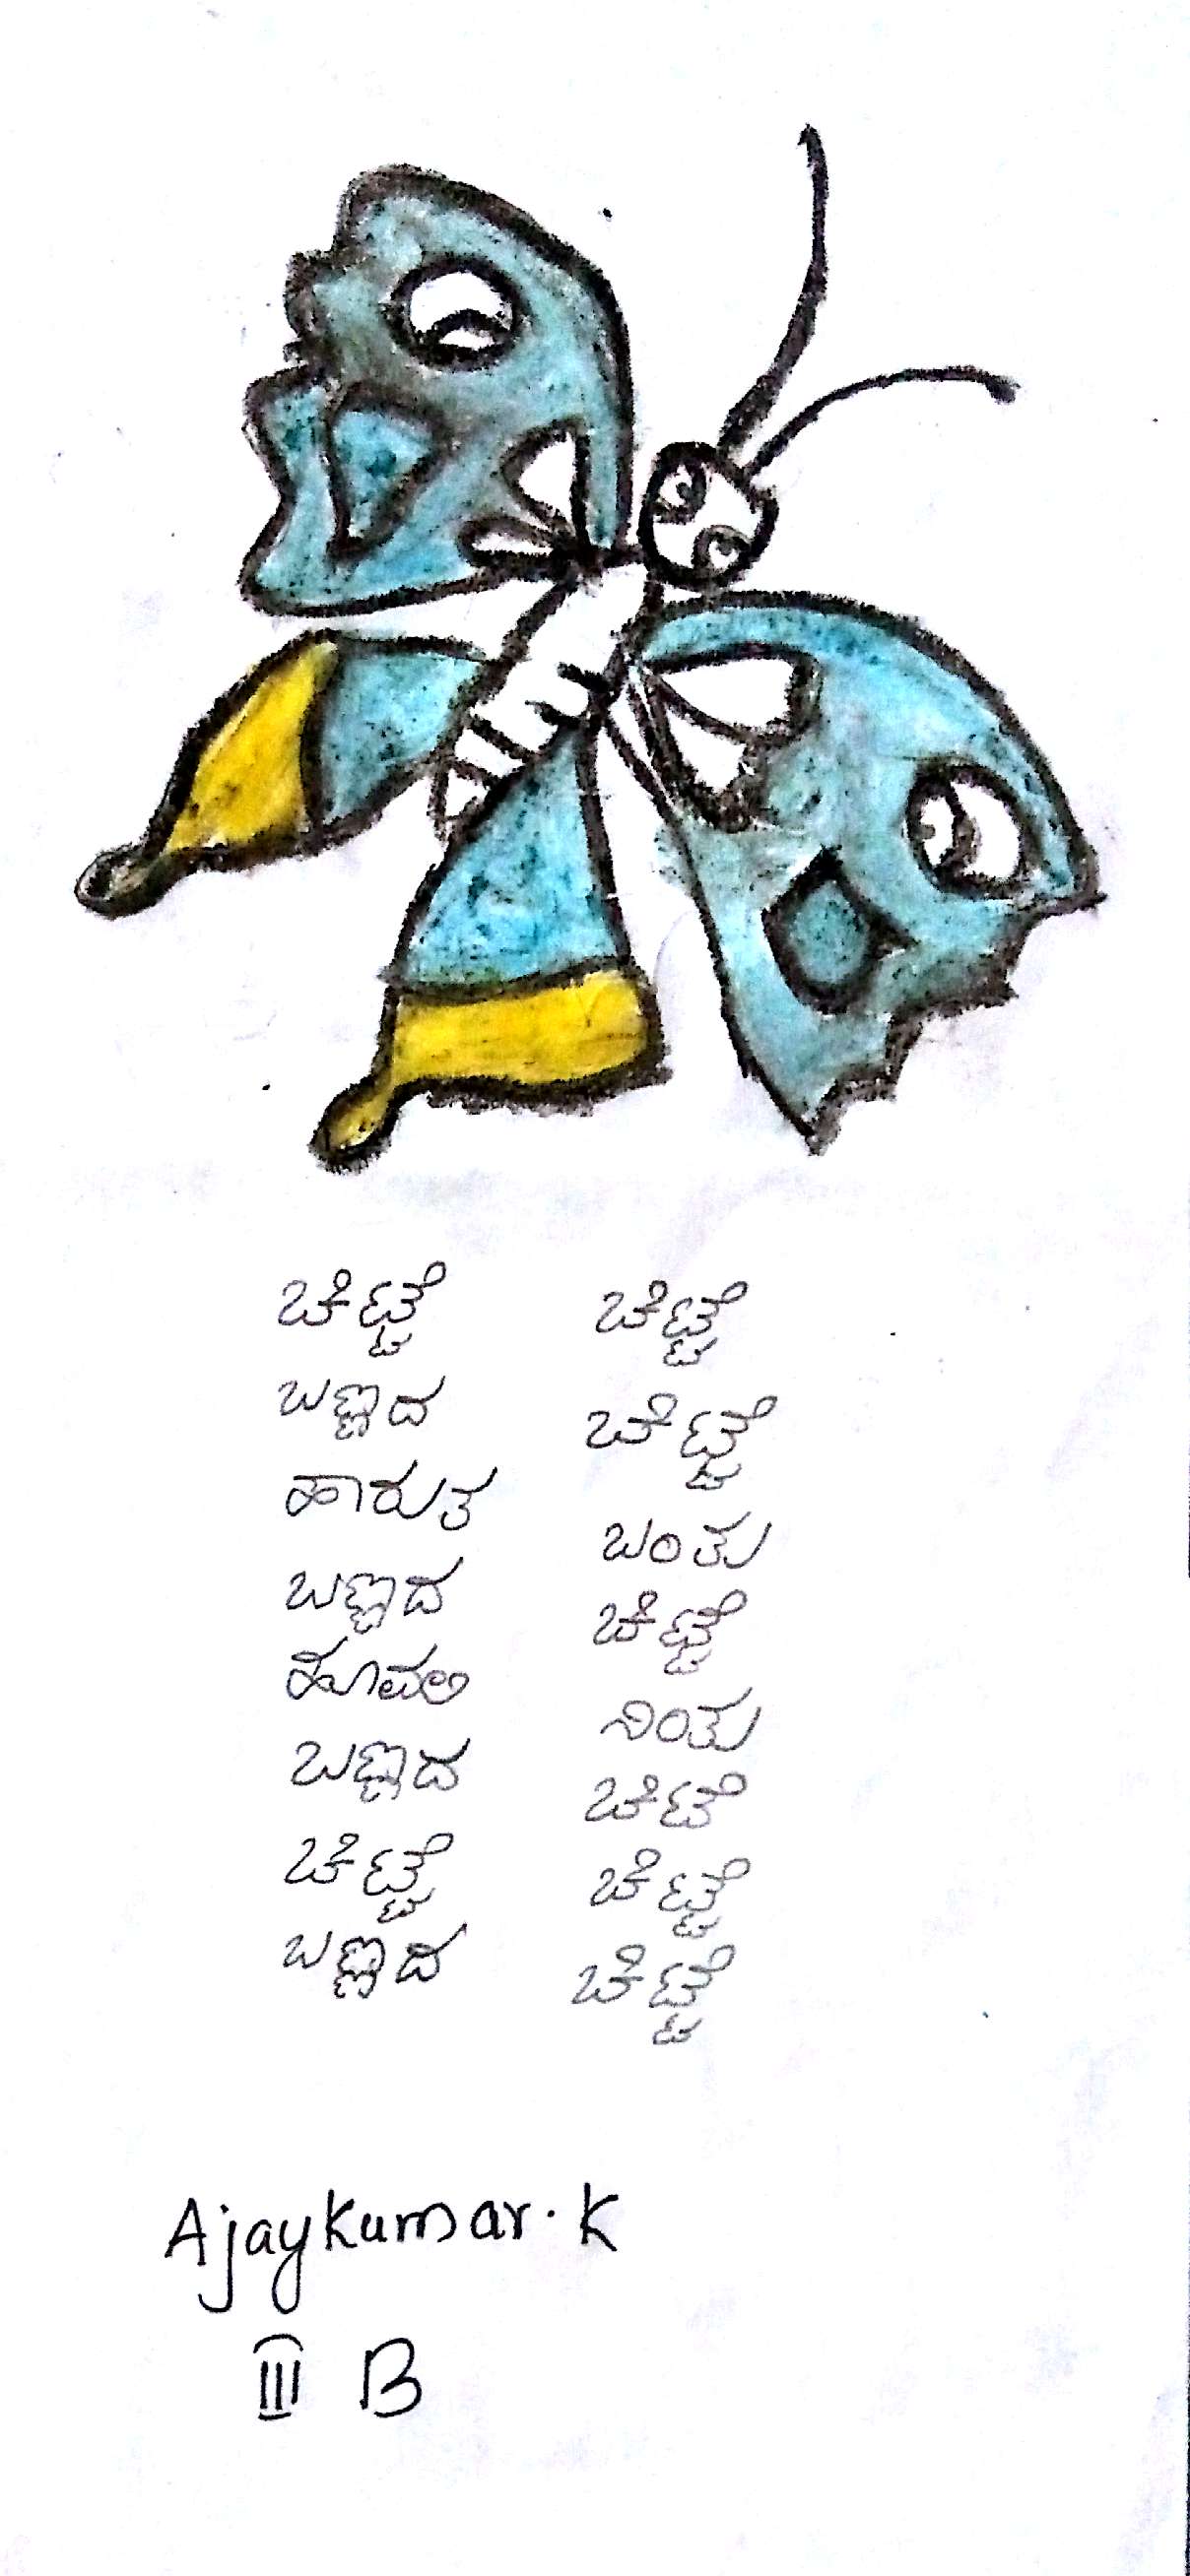 ಚಿಟ್ಟೆ ಚಿಟ್ಟೆ
ಬಣ್ಣದ ಚಿಟ್ಟೆ
ಹಾರುತ ಬಂತು
ಬಣ್ಣದ ಚಿಟ್ಟೆ
ಹೂವಲಿ ನಿಂತು
ಬಣ್ಣದ ಚಿಟೆ
ಚಿಟ್ಟೆ ಚಿಟ್ಟೆ
ಬಣ್ಣದ ಚಿಟ್ಟೆ
Ajaykumar.K
III B